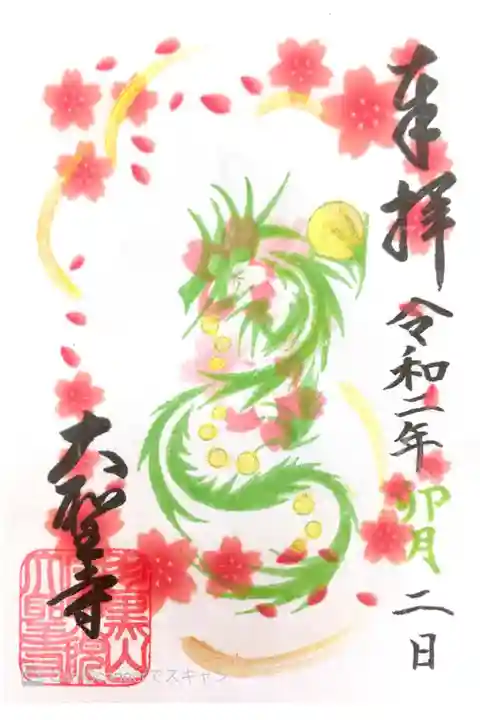 奉拝
令和二年卯月二日
大聖寺
でスキャン